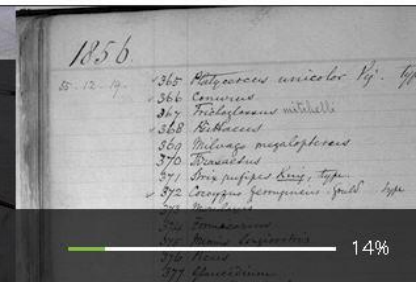 1856
55-12-19. 365 Platycercus unicolor Vig. typ
366 Conurus
367 Trichoglossus mitchelli
368 Psittacus
369 Milvago megalopterus
370 Thrasaetus
371 Strix rufipes King, type
372 Coccyzus ferrugineus Gould type
373
374
375
376 Picus
377 Glaucidium
14%